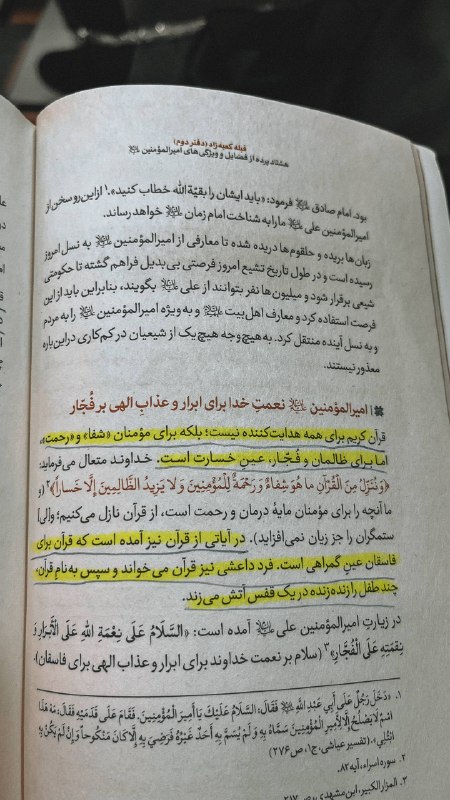 قبله کعبه زاد (دفتر دوم)
هشتاد پرده از فضایل و ویژگی‌های امیرالمؤمنین ﷺ
بود. امام صادق ﷺ فرمود: «باید ایشان را بقیّةالله خطاب کنید».۱ از این رو سخن از
امیرالمؤمنین علی ﷺ ما را به شناخت امام زمان ﷺ خواهد رساند.
زبان‌ها بریده و حلقوم‌ها دریده شده تا معارفی از امیرالمؤمنین ﷺ به نسل امروز
رسیده است و در طول تاریخ تشیع امروز فرصتی بی‌بدیل فراهم گشته تا حکومتی
شیعی برقرار شود و میلیون‌ها نفر بتوانند از علی ﷺ بگویند، بنابراین باید از این
فرصت استفاده کرد و معارف اهل‌بیت ﷺ و به ویژه امیرالمؤمنین ﷺ را به مردم
و به نسل آینده منتقل کرد. به هیچ وجه هیچ یک از شیعیان در کم‌کاری در این باره
معذور نیستند.
امیرالمؤمنین ﷺ نعمتِ خدا برای ابرار و عذابِ الهی بر فُجّار
قرآن کریم برای همه هدایت‌کننده نیست؛ بلکه برای مؤمنان «شفا» و «رحمت»،
اما برای ظالمان و فُجّار، عینِ خسارت است. خداوند متعال می‌فرماید:
﴿وَنُنَزِّلُ مِنَ الْقُرْآنِ مَا هُوَ شِفَاءٌ وَرَحْمَةٌ لِّلْمُؤْمِنِينَ وَلَا يَزِيدُ الظَّالِمِينَ إِلَّا خَسَاراً﴾۲ (و
ما آنچه را برای مؤمنان مایهٔ درمان و رحمت است، از قرآن نازل می‌کنیم؛ و[لی]
ستمگران را جز زیان نمی‌افزاید). در آیاتی از قرآن نیز آمده است که قرآن برای
فاسقان عینِ گمراهی است. فرد داعشی نیز قرآن می‌خواند و سپس به نام قرآن،
چند طفل را زنده‌زنده در یک قفس آتش می‌زند.
در زیارتِ امیرالمؤمنین علی ﷺ آمده است: «السَّلَامُ عَلَى نِعْمَةِ اللهِ عَلَى الْأَبْرَارِ وَ
نِقْمَتِهِ عَلَى الْفُجَّارِ»۳ (سلام بر نعمت خداوند برای ابرار و عذاب الهی برای فاسقان)،
۱. «دَخَلَ رَجُلٌ عَلَى أَبِي عَبْدِ اللهِ ﷺ فَقَالَ: السَّلَامُ عَلَيْكَ يَا أَمِيرَ الْمُؤْمِنِينَ. فَقَامَ عَلَى قَدَمَيْهِ فَقَالَ: مَهْ هَذَا
اسْمٌ لَا يَصْلُحُ إِلَّا لِأَمِيرِ الْمُؤْمِنِينَ سَمَّاهُ بِهِ وَ لَمْ يُسَمَّ بِهِ أَحَدٌ غَيْرُهُ فَرَضِيَ بِهِ إِلَّا كَانَ مَنْكُوحاً وَ إِنْ لَمْ يَكُنْ بِهِ
ابْتُلِيَ». (تفسیر عیاشی، ج۱، ص۲۷۶)
۲. سوره اسراء، آیه ۸۲.
۳. المزار الکبیر، ابن مشهدی، ص ۲۱۷